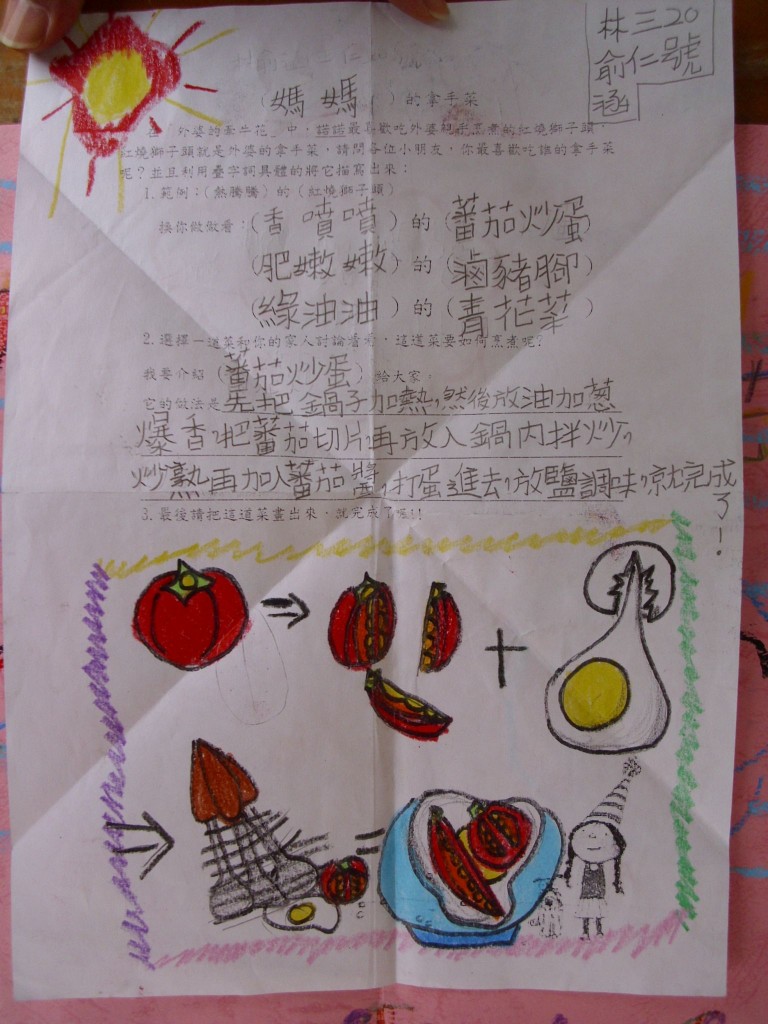 林俞涵
三仁
20號
（媽媽）的拿手菜
在「外婆的牽牛花」中，諾諾最喜歡吃外婆親手烹煮的紅燒獅子頭，
紅燒獅子頭就是外婆的拿手菜，請問各位小朋友，你最喜歡吃誰的拿手菜
呢？並且利用疊字詞具體的將它描寫出來：
1.範例：（熱騰騰）的（紅燒獅子頭）
換你做做看：（香噴噴）的（蕃茄炒蛋）
（肥嫩嫩）的（滷豬腳）
（綠油油）的（青花菜）
2.選擇一道菜和你的家人討論看看，這道菜要如何烹煮呢？
我要介紹（蕃茄炒蛋）給大家，
它的做法是先把鍋子加熱，然後放油加蔥
爆香，把蕃茄切片再放入鍋內拌炒，
炒熟再加入蕃茄醬，打蛋進去，放鹽調味，就完成了！
3.最後請把這道菜畫出來，就完成了喔！！